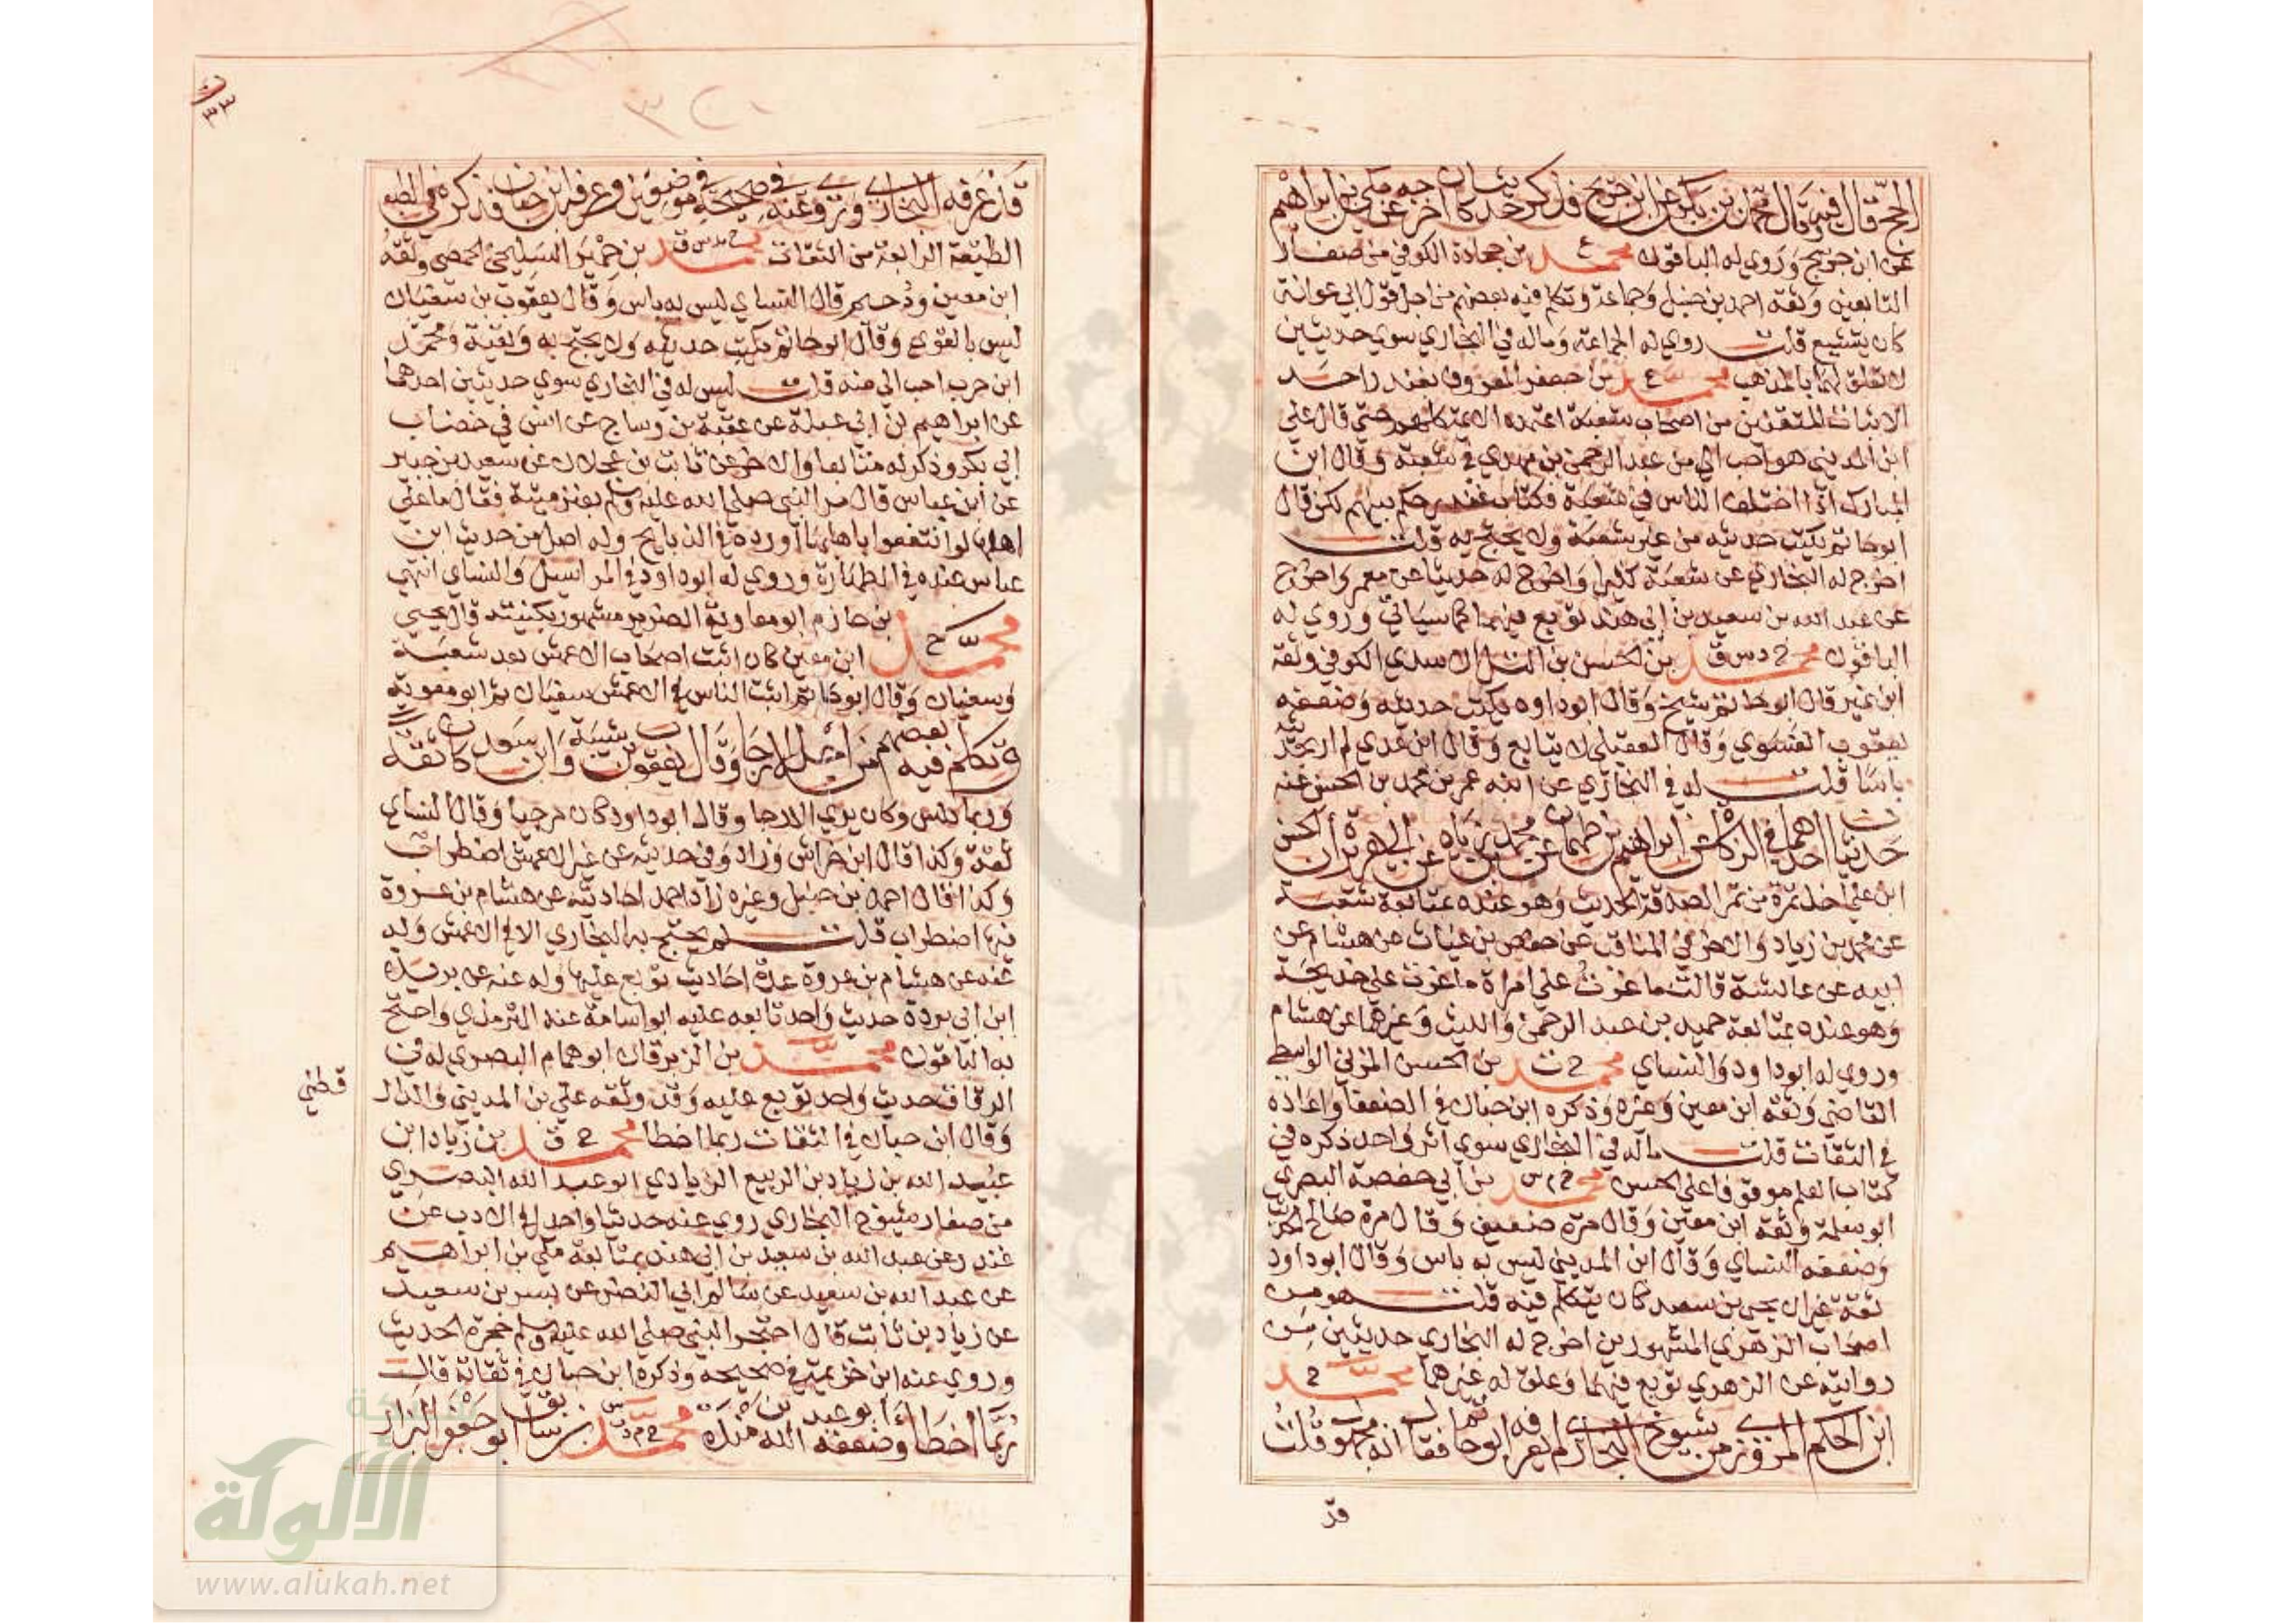 الحج قال فيه وقال محمد بن بكر عن ابن جريج فذكر حديثا كان أخرجه عن مكي بن ابراهيم
عن ابن جريج وروي له الباقون محمد ع بن جحادة الكوفي من صغار
التابعين وثقه احمد بن حنبل وجماعة وتكلم فيه بعضهم من اجل قول ابي عوانة
كان يتشيع قلت روي له الجماعة وماله في البخاري سوي حديثين
لا تعلق لهما بالمذهب محمد ع بن جعفر المعروف بغندر احد
الاثبات المتقنين من اصحاب شعبة اعتمده الائمة كلهم حتي قال علي
ابن المديني هو احب الي من عبد الرحمن بن مهدي في شعبة وقال ابن
المبارك اذا اختلف الناس في شعبة فكتاب غندر حكم بينهم لكن قال
ابو حاتم يكتب حديثه من غير شعبة ولا يحتج به قلت
اخرج له البخاري عن شعبة كثيرا واخرج له حديثا عن معمر واخرج
عن عبد الله بن سعيد بن ابي هند توبع فيهما كما سياتي وروي له
الباقون محمد خ د س ق بن الحسن بن التل الاسدي الكوفي وثقه
ابن نمير قال ابو حاتم شيخ وقال ابو داود يكتب حديثه وضعفه
يعقوب الفسوي وقال العقيلي لا يتابع وقال ابن عدي لم ار بحديثه
باسا قلت له في البخاري عن ابنه عمر بن محمد بن الحسن عنه
حديثان احدهما في الزكاة عن ابراهيم بن طهمان عن محمد بن زياد عن ابي هريرة أن الحسن
ابن علي اخذ تمرة من تمر الصدقة الحديث وهو عنده بمتابعة شعبة
عن محمد بن زياد والاخر في المناقب عن حفص بن غياث عن هشام عن
ابيه عن عائشة قالت ما غرت علي امراة ما غرت علي خديجة
وهو عنده بمتابعة حميد بن عبد الرحمن والليث وغيرهما عن هشام
وروي له ابو داود والنساي محمد خ ت بن الحسن المزني الواسطي
القاضي وثقه ابن معين وغيره وذكره ابن حبان في الضعفا واعاده
في الثقات قلت ماله في البخاري سوي اثر واحد ذكره في
كتاب العلم موقوفا علي الحسن محمد خ م س بن أبي حفصة البصري
ابو سلمة وثقه ابن معين وقال مرة ضعيف وقال مرة صالح الحديث
وضعفه النساي وقال ابن المديني ليس به باس وقال ابو داود
ثقة غير ان يحيي بن سعيد كان يتكلم فيه قلت هو من
اصحاب الزهري المشهورين اخرج له البخاري حديثين من
روايته عن الزهري توبع فيهما وعلق له غيرهما محمد خ
ابن الحكم المروزي من شيوخ البخاري لم يعرفه ابو حاتم فقال انه مجهول قلت
قد
٣٢٠
٣٣
قد عرفه البخاري وروي عنه في صحيحه في موضعين وعرفه ابن حبان فذكره في
الطبقة الرابعة من الثقات محمد خ مد س ق بن حمير السليحي الحمصي وثقه
ابن معين ودحيم قال النساي ليس به باس وقال يعقوب بن سفيان
ليس بالقوي وقال ابو حاتم يكتب حديثه ولا يحتج به وبقية ومحمد
ابن حرب احب الي منه قلت ليس له في البخاري سوي حديثين احدهما
عن ابراهيم بن ابي عبلة عن عقبة بن وساج عن انس في خضاب
ابي بكر وذكر له متابعا والاخر عن ثابت بن عجلان عن سعيد بن جبير
عن ابن عباس قال مر النبي صلي الله عليه وسلم بعنز ميتة فقال ما علي
اهلها لو انتفعوا باهابها اورده في الذبايح وله اصل من حديث ابن
عباس عنده في الطهارة وروي له ابو داود في المراسيل والنساي انتهي
محمد ع بن خازم ابو معاوية الضرير مشهور بكنيته قال يحيي
ابن معين كان اثبت اصحاب الاعمش بعد شعبة
وسفيان وقال ابو حاتم اثبت الناس في الاعمش سفيان ثم ابو معوية
وتكلم فيه بعضهم من أجل الارجا وقال يعقوب بن شيبة وابن سعد كان ثقة
وربما دلس وكان يري الارجا وقال ابو داود كان مرجيا وقال النساي
ثقة وكذا قال ابن خراش وزاد وفي حديثه عن غير الاعمش اضطراب
وكذا قال احمد بن حنبل وغيره زاد احمد احاديثه عن هشام بن عروة
فيها اضطراب قلت لم يحتج به البخاري الا في الاعمش وله
عنه عن هشام بن عروة عدة احاديث توبع عليها وله عنه عن بريد
ابن ابي بردة حديث واحد تابعه عليه ابو اسامة عند الترمذي واحتج
به الباقون محمد بن الزبرقان ابو همام البصري له في
الرقاق حديث واحد توبع عليه وقد وثقه علي بن المديني والدار
قطني
وقال ابن حبان في الثقات ربما اخطا محمد خ ق بن زياد ابن
عبيد الله بن زياد بن الربيع الزيادي ابو عبد الله البصري
من صغار شيوخ البخاري روي عنه حديثا واحد في الادب عن
غندر عن عبد الله بن سعيد بن ابي هند بمتابعة مكي بن ابراهيم
عن عبد الله بن سعيد عن سالم ابي النضر عن بسر بن سعيد
عن زيد بن ثابت قال احتجر النبي صلي الله عليه وسلم حجرة الحديث
وروي عنه ابن خزيمة في صحيحه وذكره ابن حبان في ثقاته قال
ربما أخطأ وضعفه أبو عبد الله بن منده محمد بن سابق ابو جعفر البزار
شبكة
الألوكة
www.alukah.net